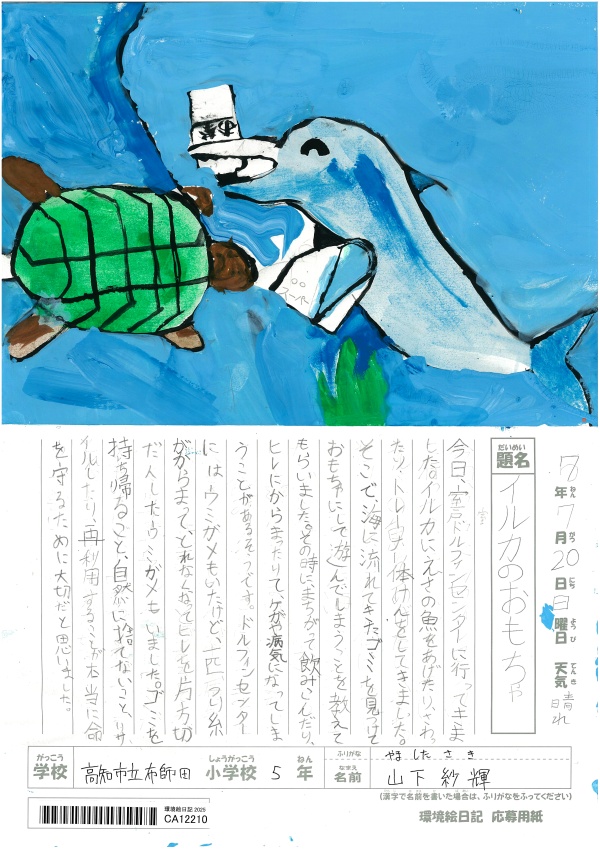 お茶
スーパー
7年7月20日日曜日 天気晴れ
ねん がつ にち ようび てんき
だいめい
題名 イルカのおもちゃ
今日、室戸ドルフィンセンターに行ってきま
した。イルカにえさの魚をあげたり、さわっ
たり、トレーナー体けんをしてきました。
そこで、海に流れてきたゴミを見つけて
おもちゃにして遊んでしまうことを教えて
もらいました。その時にまちがって飲みこんだり、
ヒレにからまったりして、ケガや病気になってしま
うことがあるそうです。ドルフィンセンター
にはウミガメもいたけど、一匹つり糸
がからまってとれなくなってヒレを片方切
だんしたウミガメもいました。ゴミを
持ち帰ること、自然に捨てないこと、リサ
イクルしたり、再利用することが本当に命
を守るために大切だと思いました。
がっこう しょうがっこう ねん ふりがな やました さき
学校 高知市立布師田 小学校 5 年 なまえ 名前 山下 紗輝
(漢字で名前を書いた場合は、ふりがなをふってください)
環境絵日記 2025
CA12210
環境絵日記 応募用紙